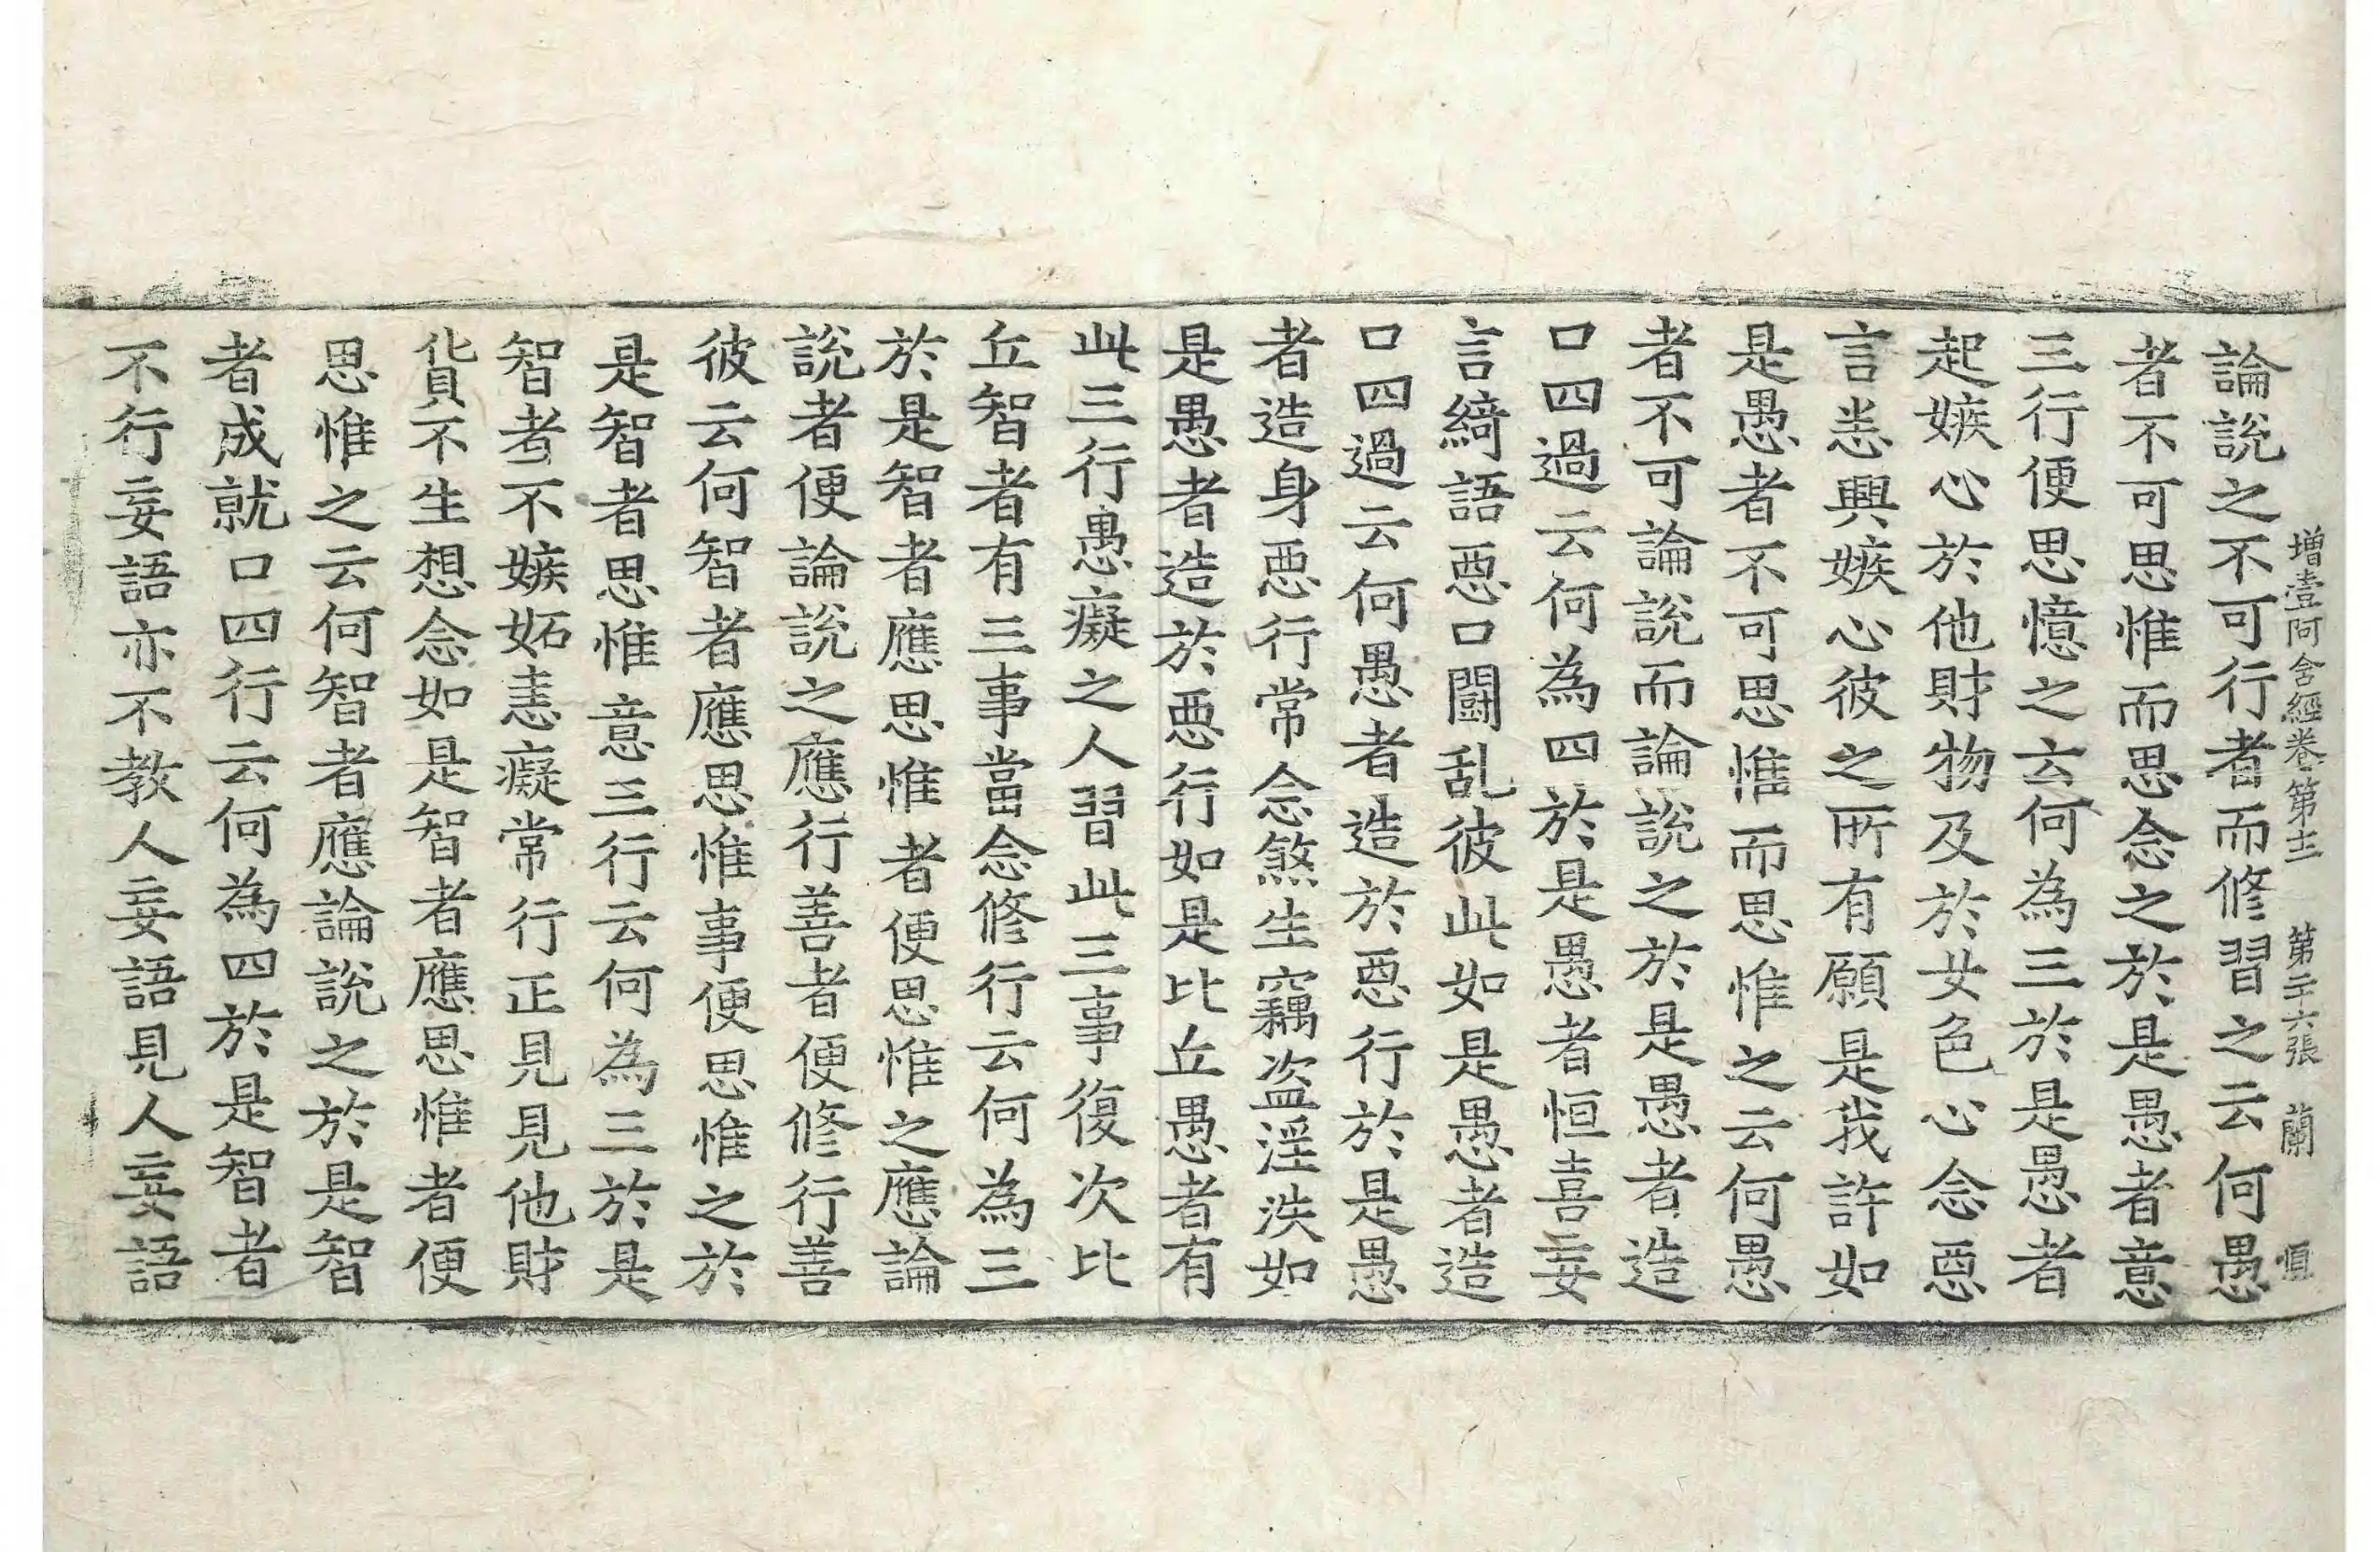 增壹阿含經卷第十二 第二十六張 蘭 恒
論說之不可行者而修習之云何愚
者不可思惟而思念之於是愚者意
三行便思憶之云何為三於是愚者
起嫉心於他財物及於女色心念惡
言恚興嫉心彼之所有願是我許如
是愚者不可思惟而思惟之云何愚
者不可論說而論說之於是愚者造
口四過云何為四於是愚者恒喜妄
言綺語惡口鬪乱彼此如是愚者造
口四過云何愚者造於惡行於是愚
者造身惡行常念煞生竊盗淫泆如
是愚者造於惡行如是比丘愚者有
此三行愚癡之人習此三事復次比
丘智者有三事當念修行云何為三
於是智者應思惟者便思惟之應論
說者便論說之應行善者便修行善
彼云何智者應思惟事便思惟之於
是智者思惟意三行云何為三於是
智者不嫉妬恚癡常行正見見他財
貨不生想念如是智者應思惟者便
思惟之云何智者應論說之於是智
者成就口四行云何為四於是智者
不行妄語亦不教人妄語見人妄語